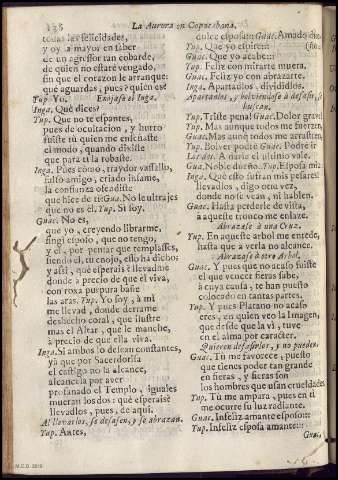 138 La Aurora en Copacabana.
todas las felicidades,
y oy la mayor en saber
de un agressor tan cobarde,
de quien no estarè vengado,
sin que el corazon le arranque:
què aguardas, pues? quièn es?
Yup. Yo. Enojase el Inga.
Inga. Què dices?
Yup. Que no te espantes,
pues de ocultacion, y hurto
fuiste tù quien me enseñaste
el modo, quando dixiste
que para ti la robaste.
Inga. Pues còmo, traydor vassallo,
falso amigo, criado infame,
la confianza ofendiste
que hice de ti? Gua. No le ultrajes
que no es èl. Yup. Si soy.
Guac. No es,
que yo, creyendo librarme,
fingi esposo, que no tengo,
y èl, por pensar que templasses,
siendo èl, tu enojo, esto ha dicho:
y assi, què esperais? llevadme
donde à precio de que èl viva,
con roxa purpura bañe
las aras. Yup. Yo soy, à mi
me llevad, donde derrame
deshecho coral, que ilustre
mas el Altar, que le manche,
à precio de que ella viva.
Inga. Si ambos lo deseais constantes,
yà que por Sacerdotisa
el castigo no la alcance,
alcancela por aver
profanado el Templo, iguales
mueran los dos: què esperais?
llevadlos, pues, de aqui.
Al llevarlos, se desasen, y se abrazan.
Yup. Antes,
dulce esposa: Guac. Amado dueño:
Yup. Que yo espire:
Guac. Que yo acabe:
Yup. Feliz con mirarte muera.
Guac. Feliz yo con abrazarte.
Inga. Apartadlos, divididlos.
Apartanlos, y bolviendose à desasir, se
buscan.
Yup. Triste pena! Guac. Dolor grave!
Yup. Mas aunque todos me fuercen,
Guac. Mas aunque todos me arrastren,
Yup. Bolver podrè Guac. Podrè ir
Los dos. A darte el ultimo vale.
Gua. Noble dueño. Yup. Esposa mia.
Inga. Què esto sufran mis pesares!
llevadlos, digo otra vez,
donde no se vean, ni hablen.
Guac. Hasta perderle de vista,
à aqueste tronco me enlace.
Abrazase à una Cruz.
Yup. En aqueste arbol me enrede,
hasta que à verla no alcance.
Abrazase à otro Arbol.
Guac. Y pues que no acaso fuiste
el que vencer fieras sabe,
à cuya causa, te han puesto
colocado en tantas partes.
Yup. Y pues Platano no acaso
eres, en quien veo la Imagen,
que desde que la vì, tuve
en el alma por caracter.
Quieren desasirlos, y no pueden.
Guac. Tù me favorece, puesto
que tienes poder tan grande
en fieras, y fieras son
los hombres que usan crueldades.
Yup. Tù me ampara, pues en ti
me ocurre su luz radiante.
Guac. Infeliz amante esposo:
Yup. Infeliz esposa amante:
Guac,
M.C.D. 2010